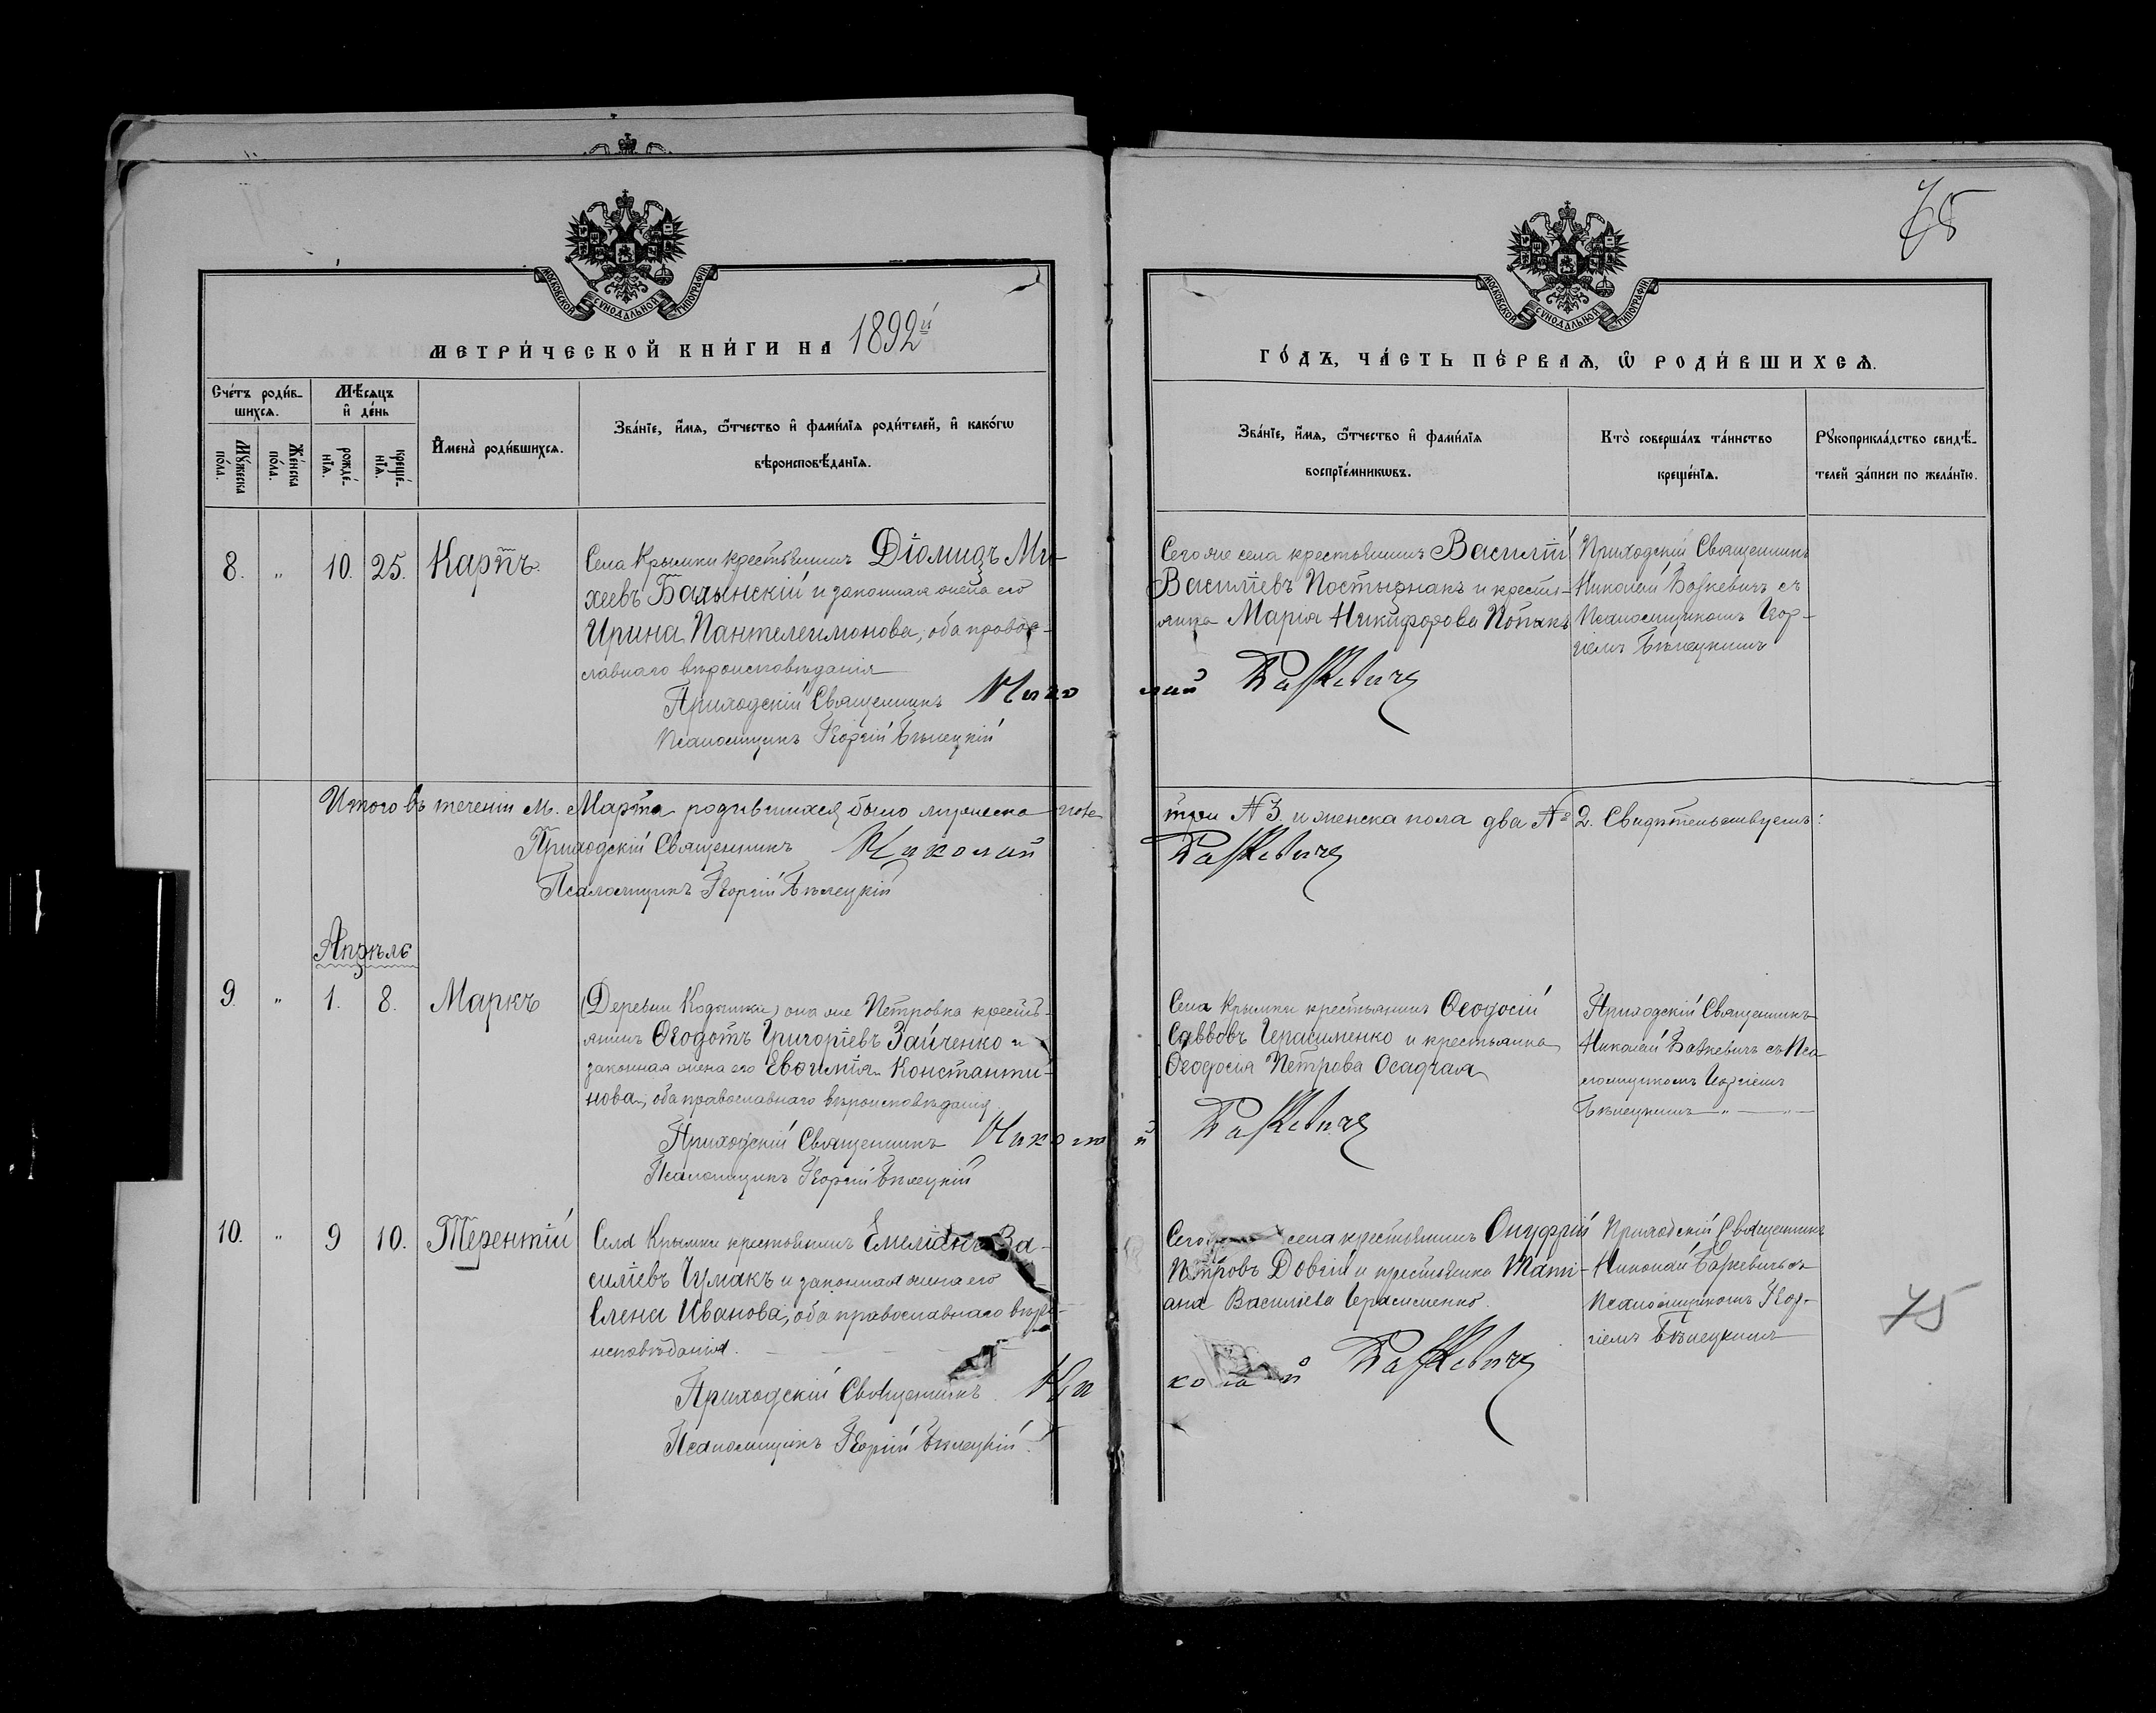 75
МОСКОВСКОЙ СУНОДАЛЬНОЙ ТИПОГРАФІИ
МОСКОВСКОЙ СУНОДАЛЬНОЙ ТИПОГРАФІИ
МЕТРИ́ЧЕСКОЙ КНИ́ГИ НА 1892й
ГО́ДЪ, ЧА́СТЬ ПЕ́РВАѦ, Ѡ РОДИ́ВШИХСѦ.
Сче́тъ роди́в-
шихсѧ.
Мꙋ́жеска
по́ла.
Же́нска
по́ла.
Мѣ́сѧцъ
и҆ де́нь
рожде́-
нїѧ.
креще́-
нїѧ.
И҆мена̀ роди́вшихсѧ.
Зва́нїе, и҆́мѧ, ѻ҆́тчество и҆ фами́лїѧ роди́телей, и҆ како́гѡ
вѣроисповѣ́данїѧ.
Зва́нїе, и҆́мѧ, ѻ҆́тчество и҆ фами́лїѧ
воспрїе́мникѡвъ.
Кто̀ соверша́лъ та́инство
креще́нїѧ.
Рꙋкоприкла́дство свидѣ́-
телей за́писи по жела́нїю.
8. " 10. 25. Карпъ.
Села Крымки крестьянинъ Діомидъ Ми-
хеевъ Балынскій и законная жена его
Ирина Пантелеимонова, оба право-
славнаго вѣроисповѣданія
Приходскій Священникъ Николай
Псаломщикъ Георгій Бѣлецкій
Сего же села крестьянинъ Василій
Василіевъ и крестья-
нка Марія Никифорова
Приходскій Священникъ
Николай съ
Псаломщикомъ Геор-
гіемъ Бѣлецкимъ
Итого въ теченіи м. Марта родившихся было мужеска пола
три № 3. и женска пола два № 2. Свидѣтельствуемъ:
Приходскій Священникъ Николай
Псаломщикъ Георгій Бѣлецкій
Апрѣль
9. " 1. 8. Маркъ
(Деревни она же Петровка кресть-
янинъ Ѳеодотъ Григоріевъ Зайченко и
законная жена его Евѳимія Константи-
нова, оба православнаго вѣроисповѣданія
Приходскій Священникъ Николай
Псаломщикъ Георгій Бѣлецкій
Села Крымки крестьянинъ Ѳеодосій
Савввовъ Герасименко и крестьянка
Ѳеодосія Петрова Осадчая
Приходскій Священникъ
Николай съ Пса-
ломщикомъ Георгіемъ
Бѣлецкимъ " "
10. " 9 10. Терентій
Села Крымки крестьянинъ Емеліанъ Ва-
силіевъ Чумакъ и законная жена его
Елена Иванова, оба православнаго вѣро-
исповѣданія.
Приходскій Священникъ Николай
Псаломщикъ Георгій Бѣлецкій.
села крестьянинъ Онуфрій
Петровъ Довгій и крестьянка Тати-
ана Василіева Герасименко.
Приходскій Священникъ
Николай съ
Псаломщикомъ Геор-
гіемъ Бѣлецкимъ
75